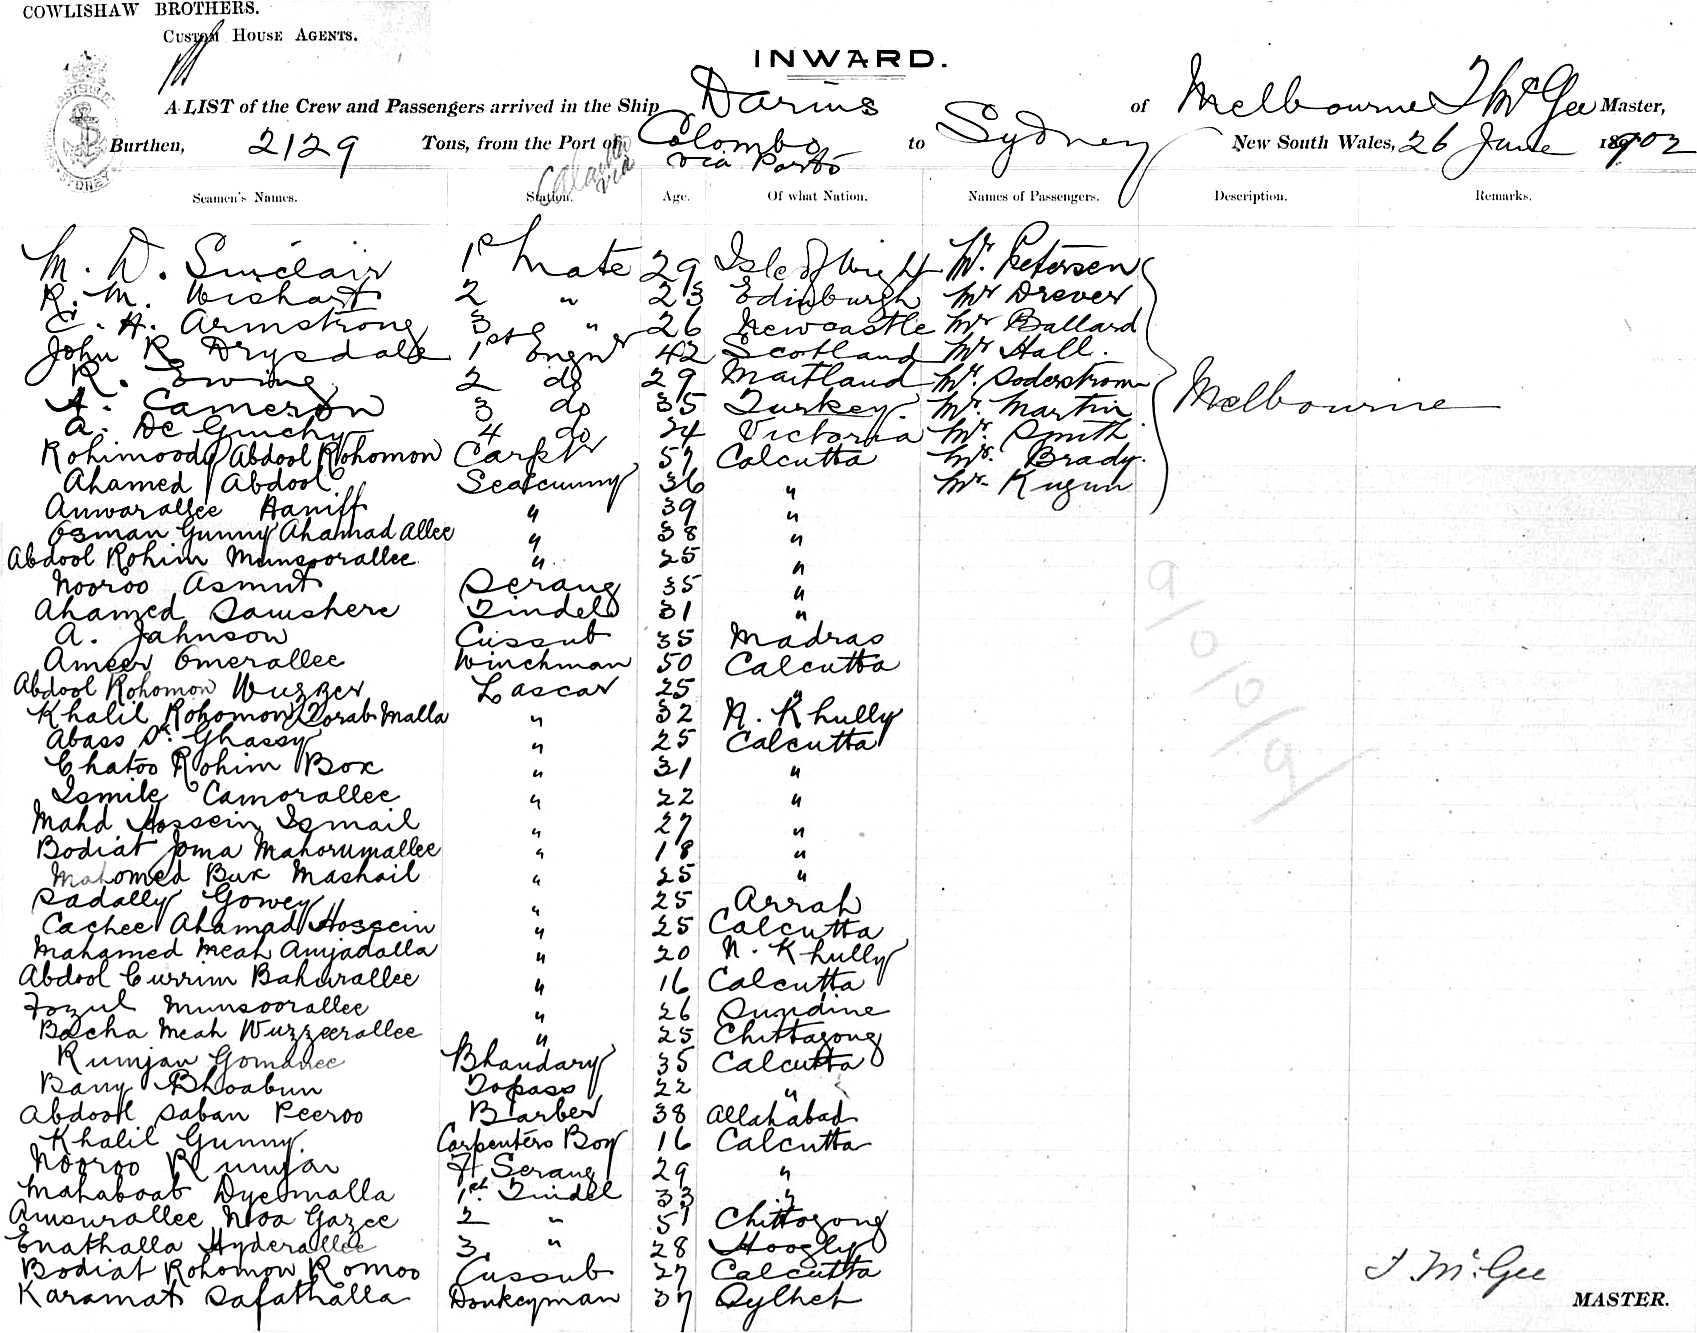 COWLISHAW BROTHERS.
CUSTOM HOUSE AGENTS.
INWARD.
A LIST of the Crew and Passengers arrived in the Ship Darius of Melbourne T McGee Master,
Burthen, 2129 Tons, from the Port of Colombo via Ports to Sydney New South Wales, 26 June 1902
Seamen's Names. Station. Age. Of what Nation. Names of Passengers. Description. Remarks.
M. D. Sinclair 1st Mate 29 Isle of Wight Mr. Petersen
R. M. Wishart 2 " 23 Edinburgh Mr Drever
C. A. Armstrong 3 " 26 Newcastle Mr Ballard
John R Drysdale 1st Engnr 42 Scotland Mr Hall.
R. Ewing 2 do 29 Maitland Mr. Soderstrom
A. Cameron 3 do 35 Turkey. Mr. Martin Melbourne
A. De Gruchy 4 do 24 Victoria Mr. Smith
Rohimoody Abdool Rohomon Carptr 57 Calcutta Mr. Brady.
Ahamed Abdool Seacunny 36 " Mr. Kugun
Anwarallee Haniff " 39 "
Osman Gunny Ahamad Allee " 38 "
Abdool Rohim Munsoorallee " 25 "
Nooroo Asmut Serang 35 "
Ahamed Samshere Tindel 31 "
A. Jahnson Cussub 35 Madras
Ameer Omerallee Winchman 50 Calcutta
Abdool Rohomon Wuzzer Lascar 25 "
Khalil Rohomon Torab Malla " 32 N. Khully
Abass Sk. Ghassy " 25 Calcutta
Chatoo Rohim Box " 31 "
Ismile Camorallee " 22 "
Mahd Hossein Ismail " 27 "
Bodiat Joma Mahorumallee " 18 "
Mahomed Bux Mashail " 25 "
Sadally Gowey " 25 Arrah
Cachee Ahamad Hossein " 25 Calcutta
Mahamed Meah Amjadalla " 20 N. Khully
Abdool Currim Bahurallee " 16 Calcutta
Fozul Munsoorallee " 26 Sundine
Bacha Meah Wuzzeerallee " 25 Chittagong
Rumjan Gomanee Bhandary 35 Calcutta
Bany Bhoabun Topass 22 "
Abdool Saban Peeroo Barber 38 Allahabad
Khalil Gunny Carpenters Boy 16 Calcutta
Nooroo Rumjan F. Serang 29 "
Mahaboab Dyemalla 1st. Tindel 33 "
Amsurallee Noa Gazee 2 " 51 Chittogong
Enathalla Hyderallee 3. " 28 Hoogly
Bodiat Rohomon Romoo Cussub 27 Calcutta
Karamat Safathalla Donkeyman 37 Sylhet
T McGee
MASTER.